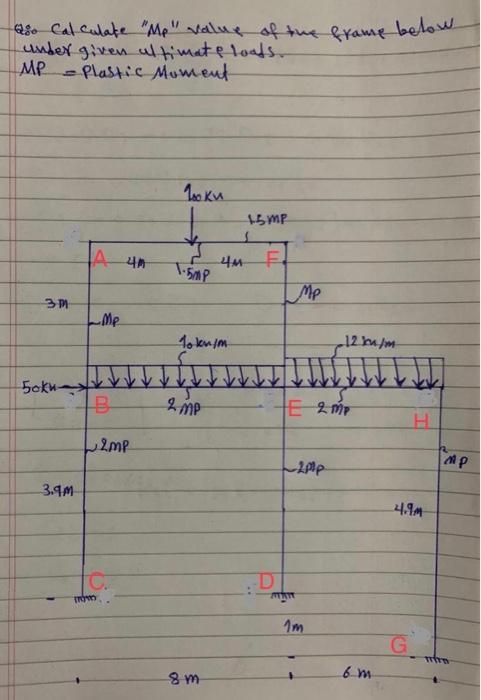 Cal culate "Mp" value of the frame below
under given ultimate loads.
MP = Plastic Moment
100KN
1.5MP
A 4M 4M F
1.5MP
3m
MP
MP
10KN/m
12KN/m
50KN
B 2MP E 2MP H
2MP
2MP
MP
3.9M
4.9M
C D
1m
G
8m 6m